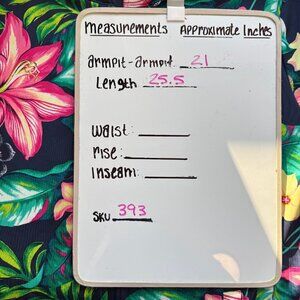 Measurements Approximate Inches
armpit-armpit: 21
Length 25.5
Waist:
rise:
Inseam:
SKU 393